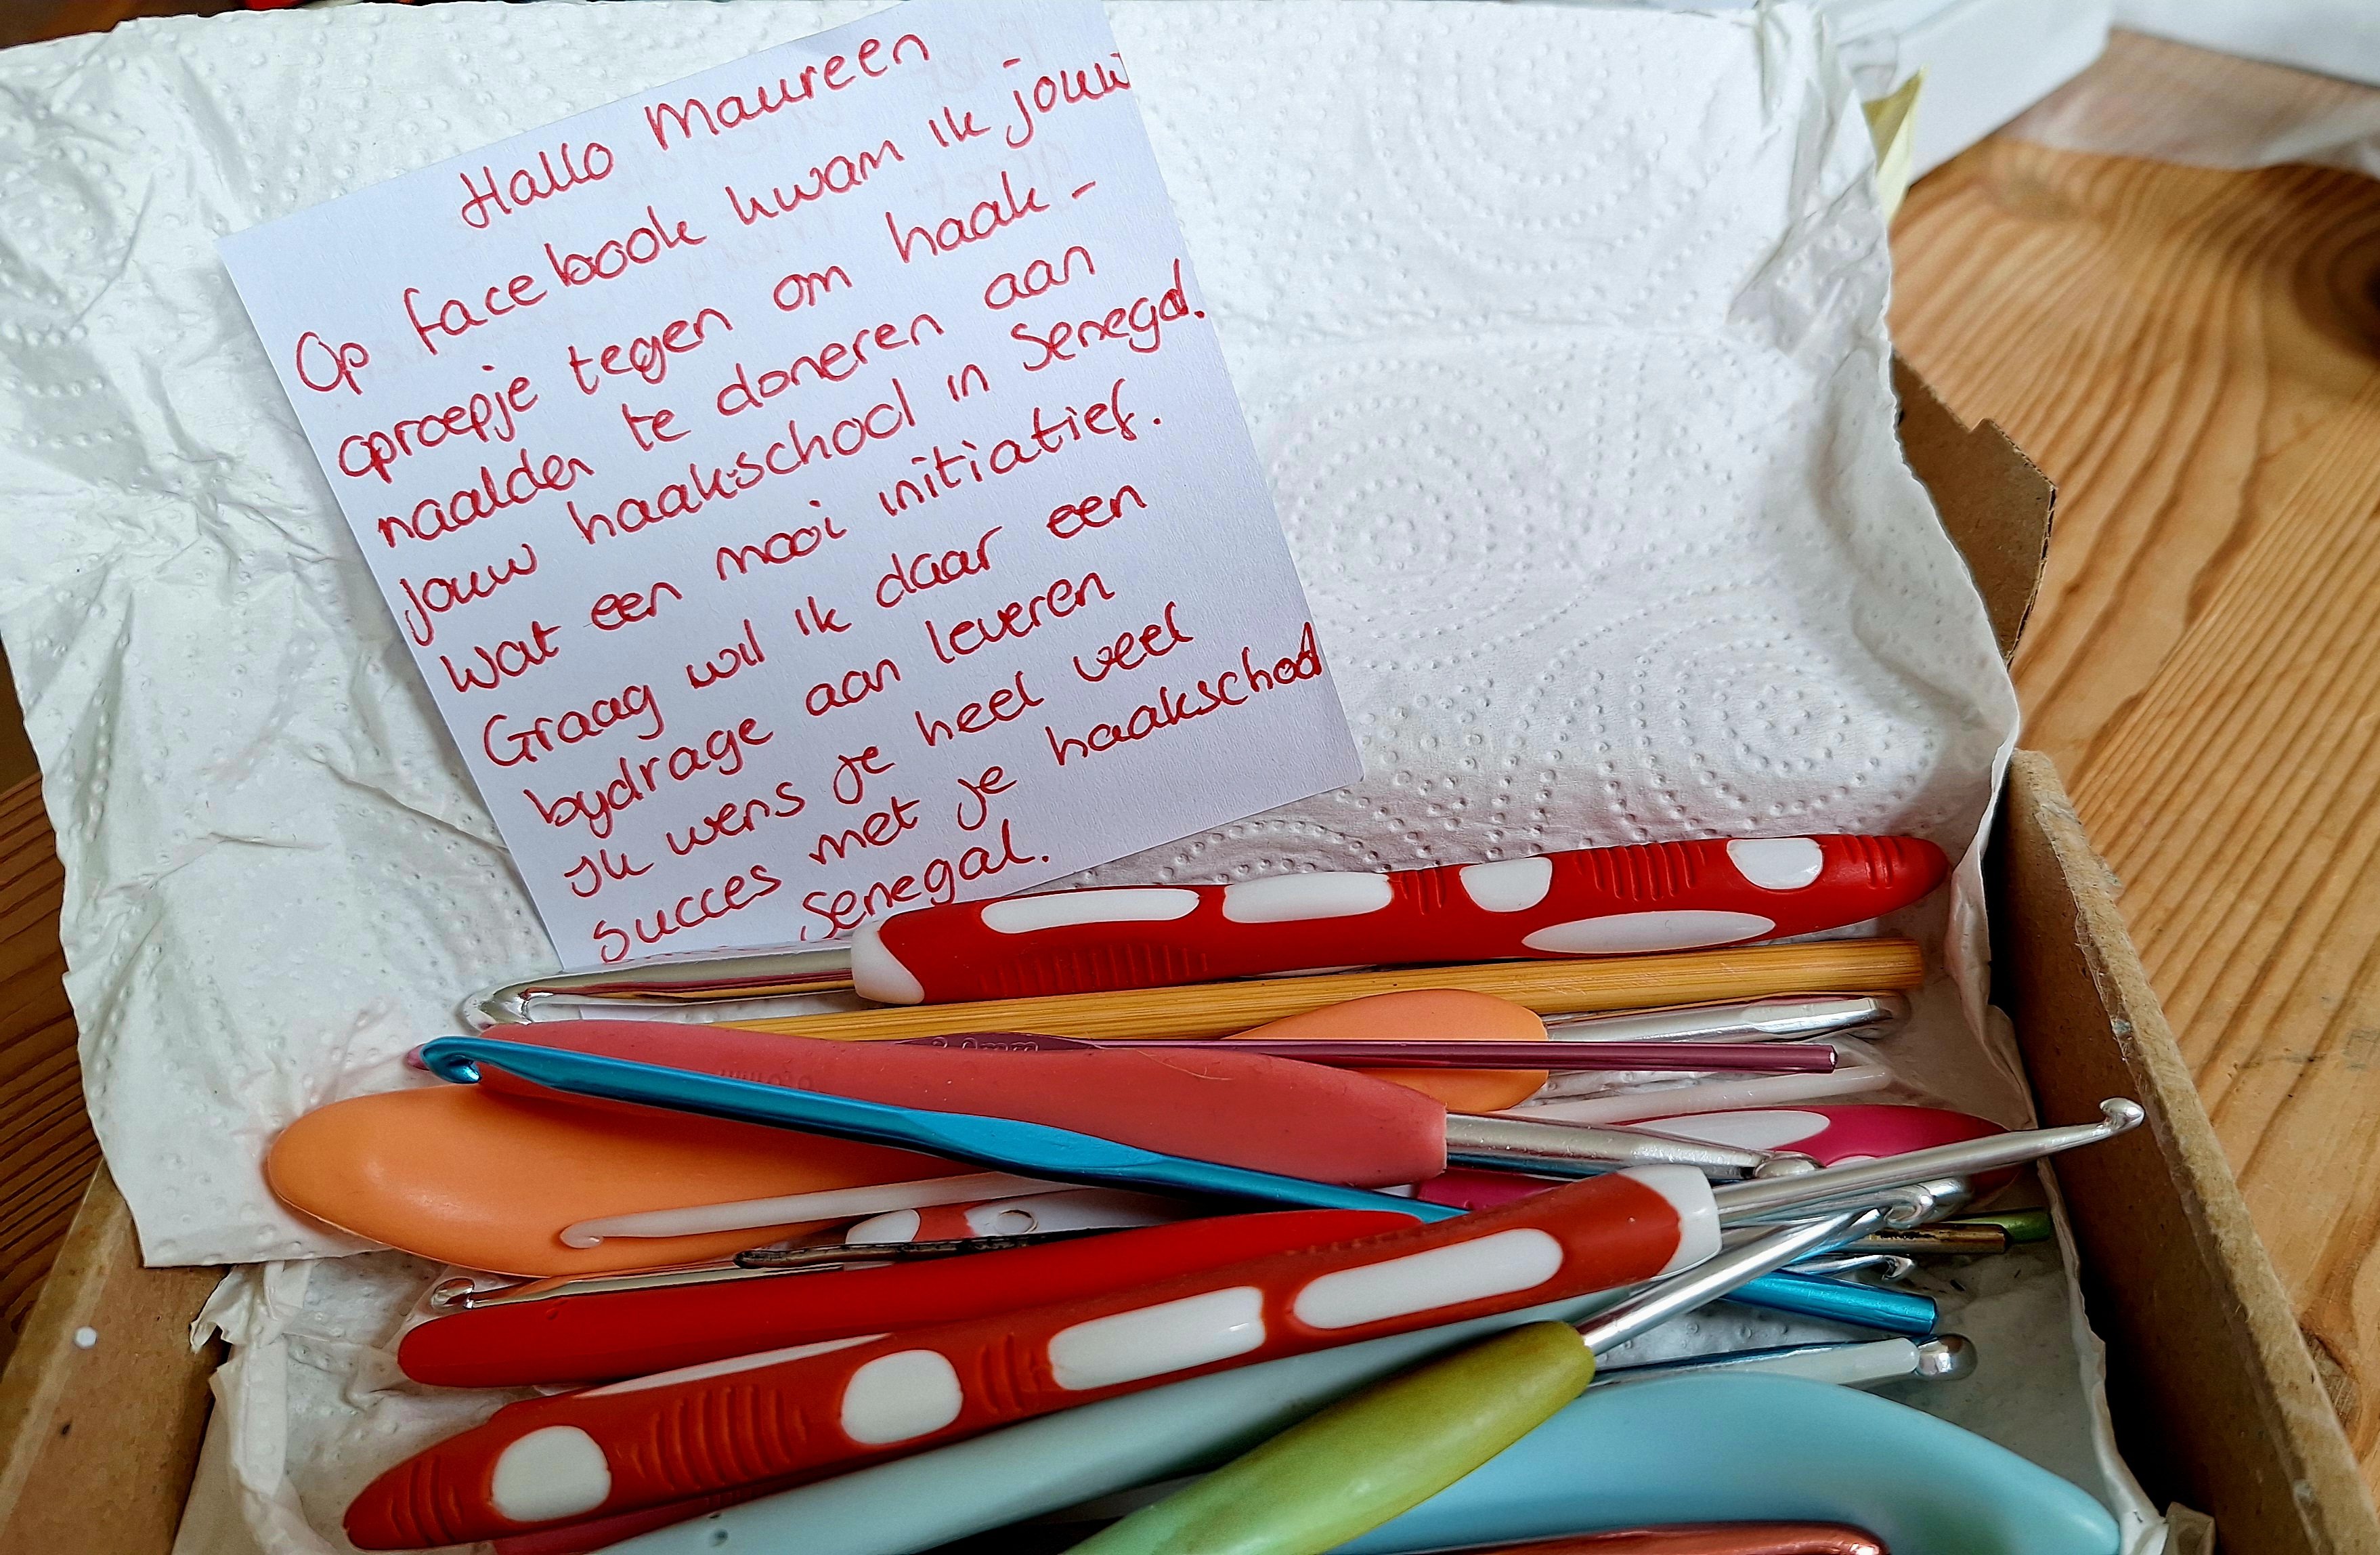 Hallo Maureen
Op facebook kwam ik jouw
oproepje tegen om haak-
naalden te doneren aan
jouw haakschool in Senegal.
Wat een mooi initiatief.
Graag wil ik daar een
bydrage aan leveren
Ik wens je heel veel
succes met je haakschool
Senegal.